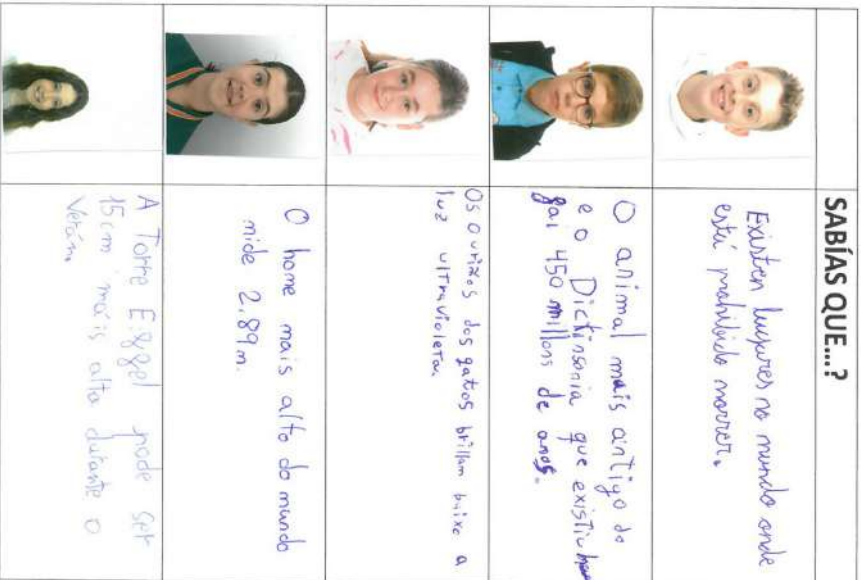 SABÍAS QUE...?
Existen lugares no mundo onde
está prohibido morrer.
O animal mais antigo do
e o Dickinsonia que existiu
gai 450 millons de anos.
Os ourizos dos gatos brillan baixo a
luz ultravioleta.
O home mais alto do mundo
mide 2.89m.
A Torre Eiffel pode ser
15cm máis alta durante o
Verán.